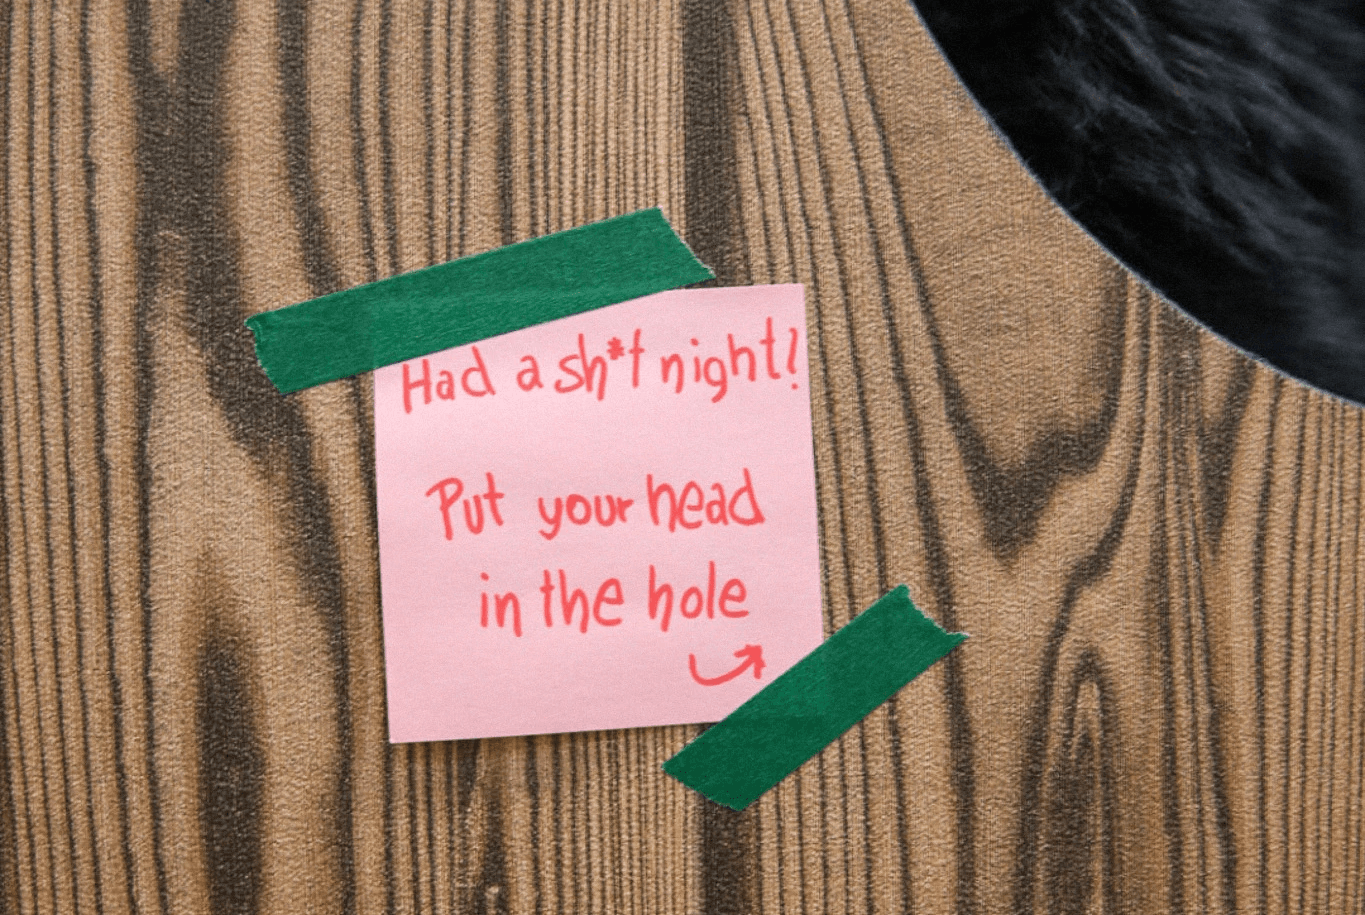 Had a sh*t night!
Put your head
in the hole